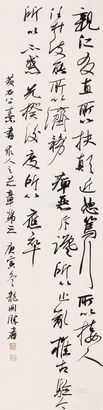 親仁友直所以扶顛近恕篤行所以接人
任材使能所以濟務癉惡斥讒所以止亂推古驗今
所以不惑先揆後度所以應卒
黃石公素書求人之志章第三庚寅冬龍開勝書